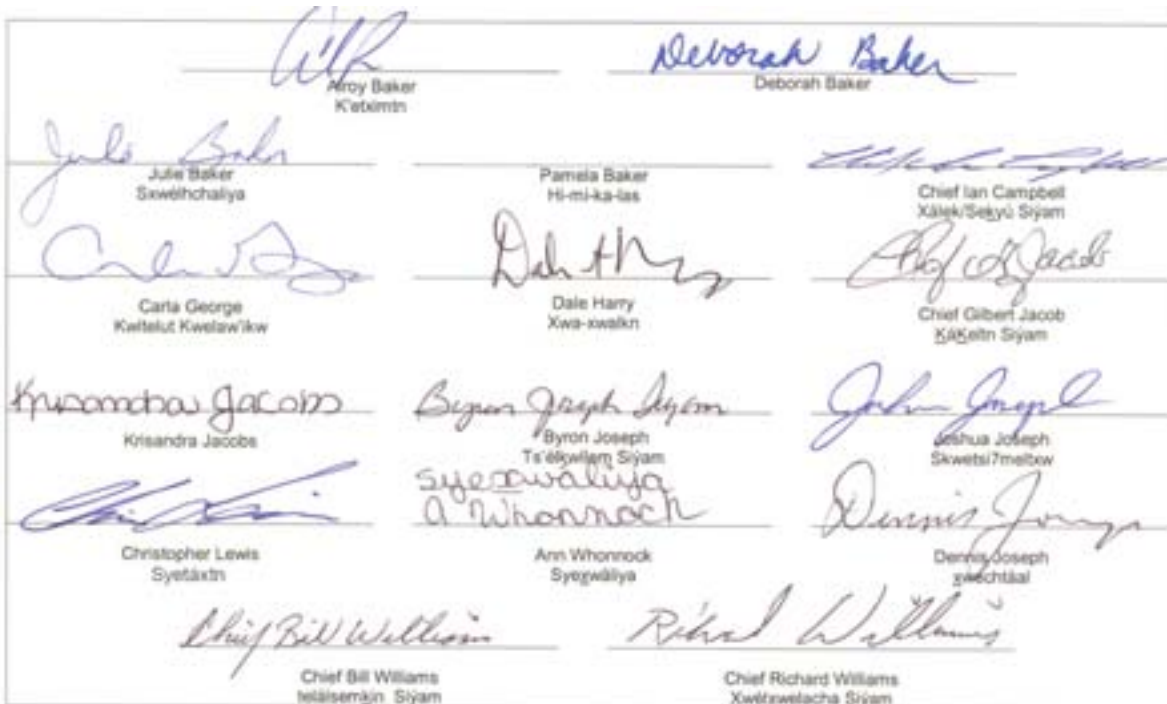 Deborah Baker
Alroy Baker
K'etximtn
Deborah Baker
Julie Baker
Sxwélhchaliya
Pamela Baker
Hi-mi-ka-las
Chief Ian Campbell
Xálek/Seḵyú Siýam
Carla George
Kwitelut Kwelaw'ikw
Dale Harry
Xwa-xwalkn
Chief Gilbert Jacob
ḴáḴeltn Siýam
Krisandra Jacobs
Krisandra Jacobs
Byron Joseph Siyam
Byron Joseph
Ts'élkwilem Siýam
Joshua Joseph
Skwetsi7meltxw
Christopher Lewis
Syetáxtn
syex̱wáliya
A Whonnock
Ann Whonnock
Syex̱wáliya
Dennis Joseph
x̱wechtáal
Chief Bill Williams
Chief Bill Williams
telálsemkin Siýam
Richard Williams
Chief Richard Williams
Xwélxwelacha Siýam